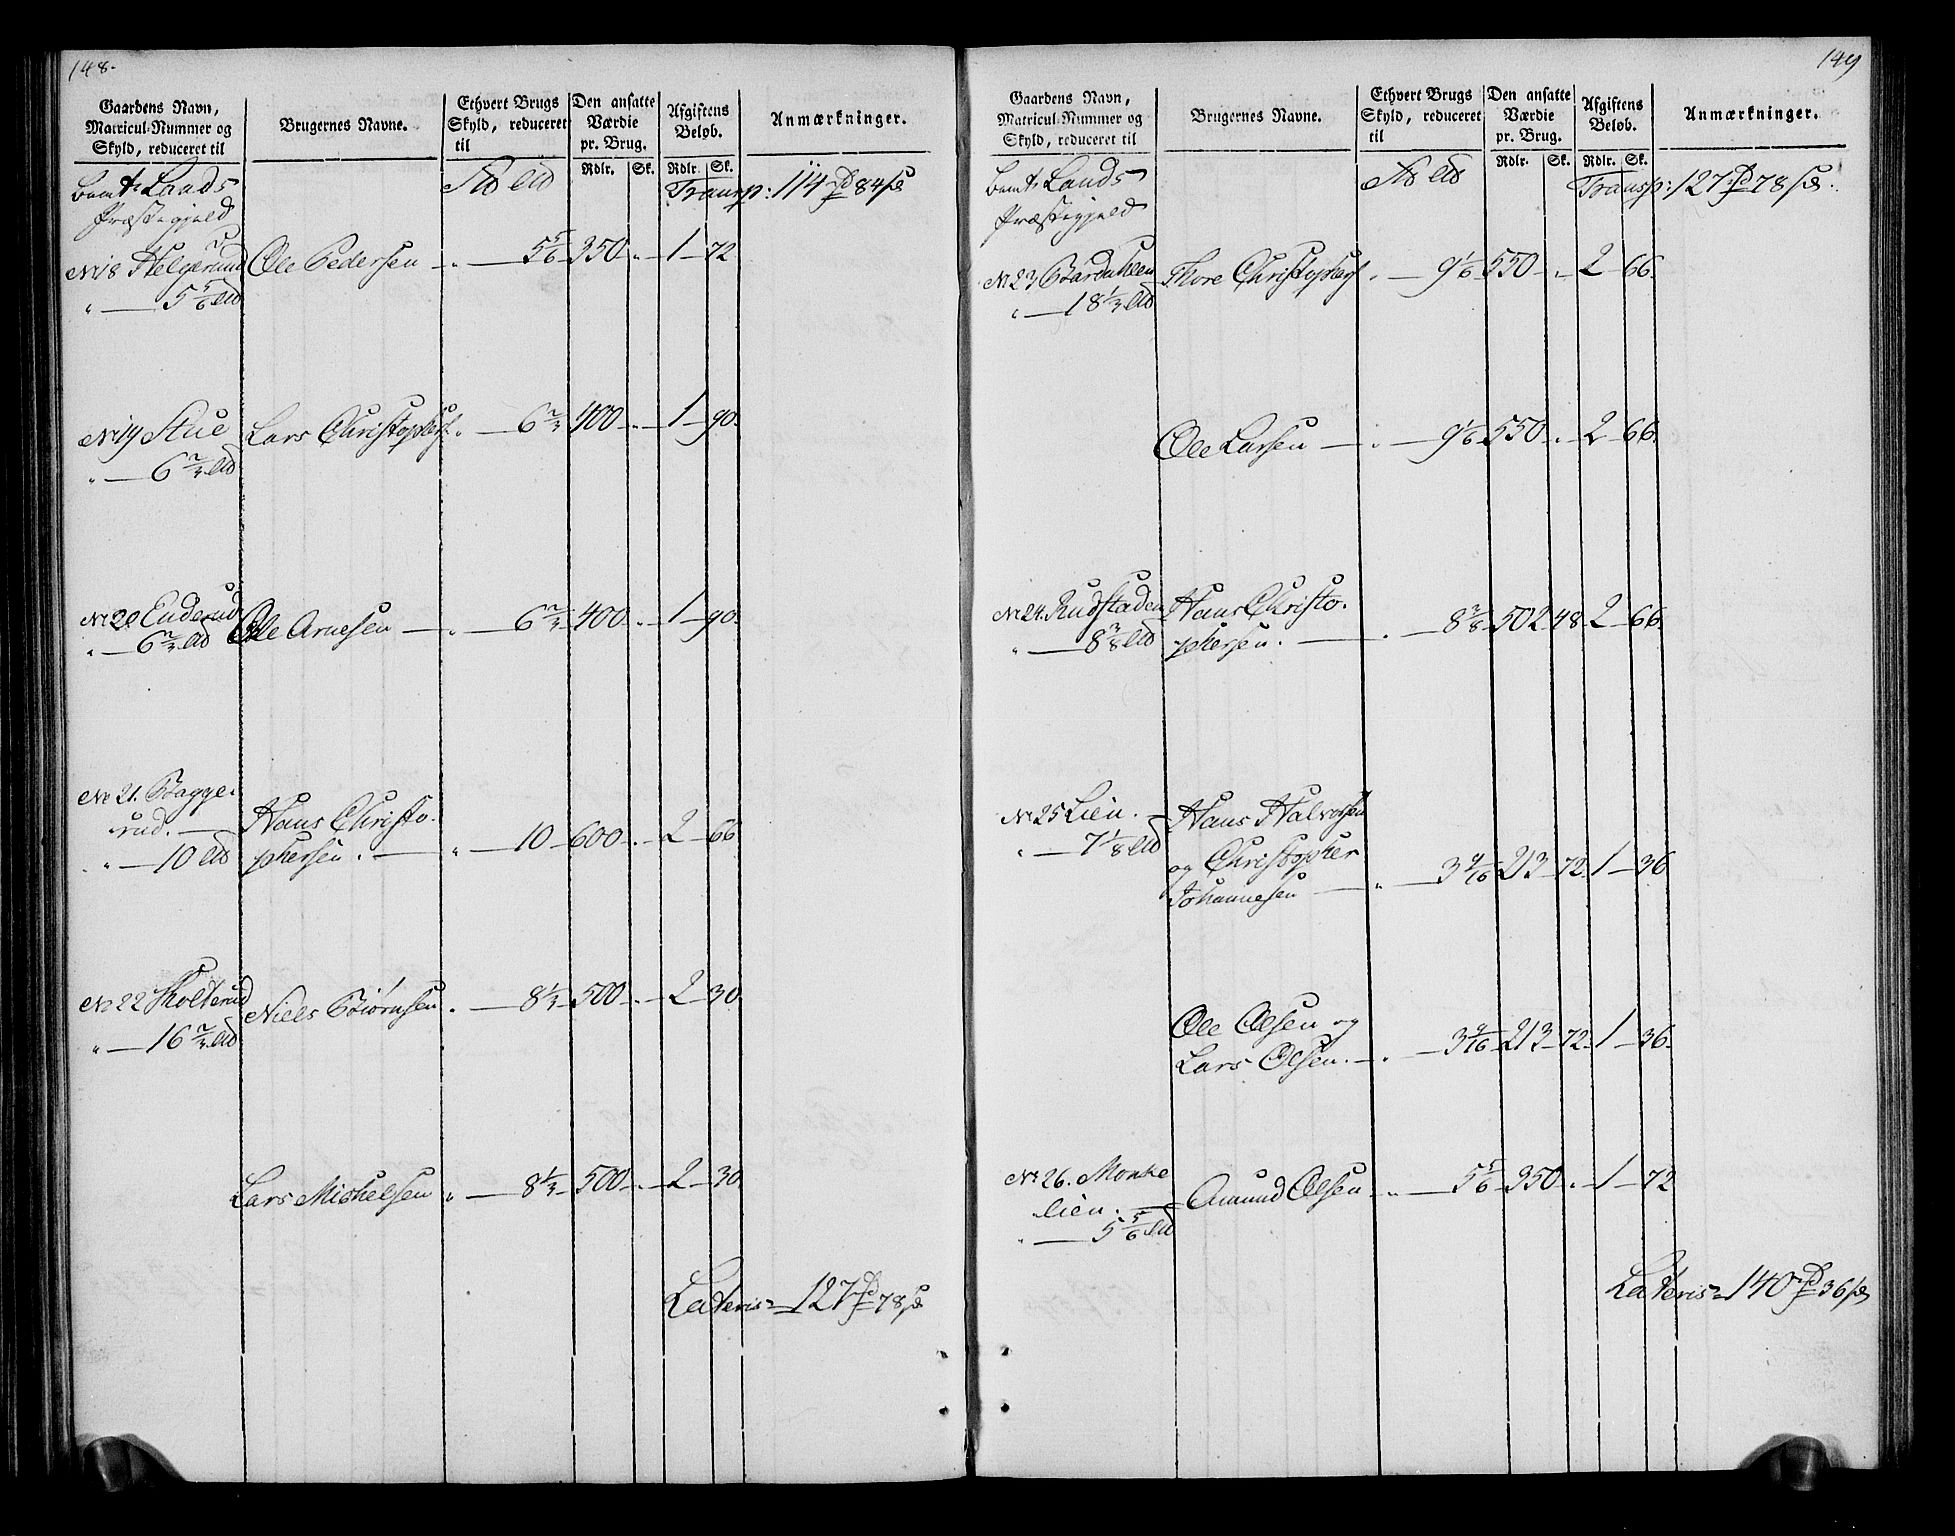 148.
Gaardens Navn, Matricul-Nummer og Skyld, reduceret til
Brugernes Navne.
Ethvert Brugs Skyld, reduceret til
Den ansatte Værdie pr. Brug.
Afgiftens Beløb.
Anmærkninger.
Rdlr. Sk. Rdlr. Sk.
Lands Transp: 114 84
Præstegjeld
No 18 Helgerud Ole Pedersen — 5 5/6 350 " 1 72
" — 5 5/6
No 19 Stue Lars Christophers. " — 6 2/3 400 " 1 90.
" — 6 2/3
No 20. Enderud Ole Arnesen — " — 6 2/3 400 " 1 90.
" — 6 2/3
No 21. Bagge-
rud. — Hans Christo-
" — 10 phersen. — " — 10 600 " 2 66
No 22 Skolterud Niels Biörnsen. — 8 1/3 500 " 2 30.
" — 16 2/3
Lars Michelsen " — 8 1/3 500 " 2 30
Lateris = 127 78
149
Gaardens Navn, Matricul-Nummer og Skyld, reduceret til
Brugernes Navne.
Ethvert Brugs Skyld, reduceret til
Den ansatte Værdie pr. Brug.
Afgiftens Beløb.
Anmærkninger.
Rdlr. Sk. Rdlr. Sk.
Lands Transp: 127 78
Præstegjeld
No 23 Thore Christophers " — 9 1/6 550 " 2 66.
" — 18 1/3
Ole Larsen — " — 9 1/6 550 " 2 66.
No 24. Rudstaden Hans Christo-
" — 8 3/8 phersen. — " — 8 3/8 502 48 2 66.
No 25 Lien. — Hans Halvorsen
" — 7 1/8 og Christopher
Johannesen — " — 3 9/16 213 72 1 36
Ole Olsen og
Lars Olsen. — " — 3 9/16 213 72 1 36.
No 26. Monke
lien. — Amund Olsen — " — 5 5/6 350 " 1 72
" — 5 5/6
Lateris = 140 36